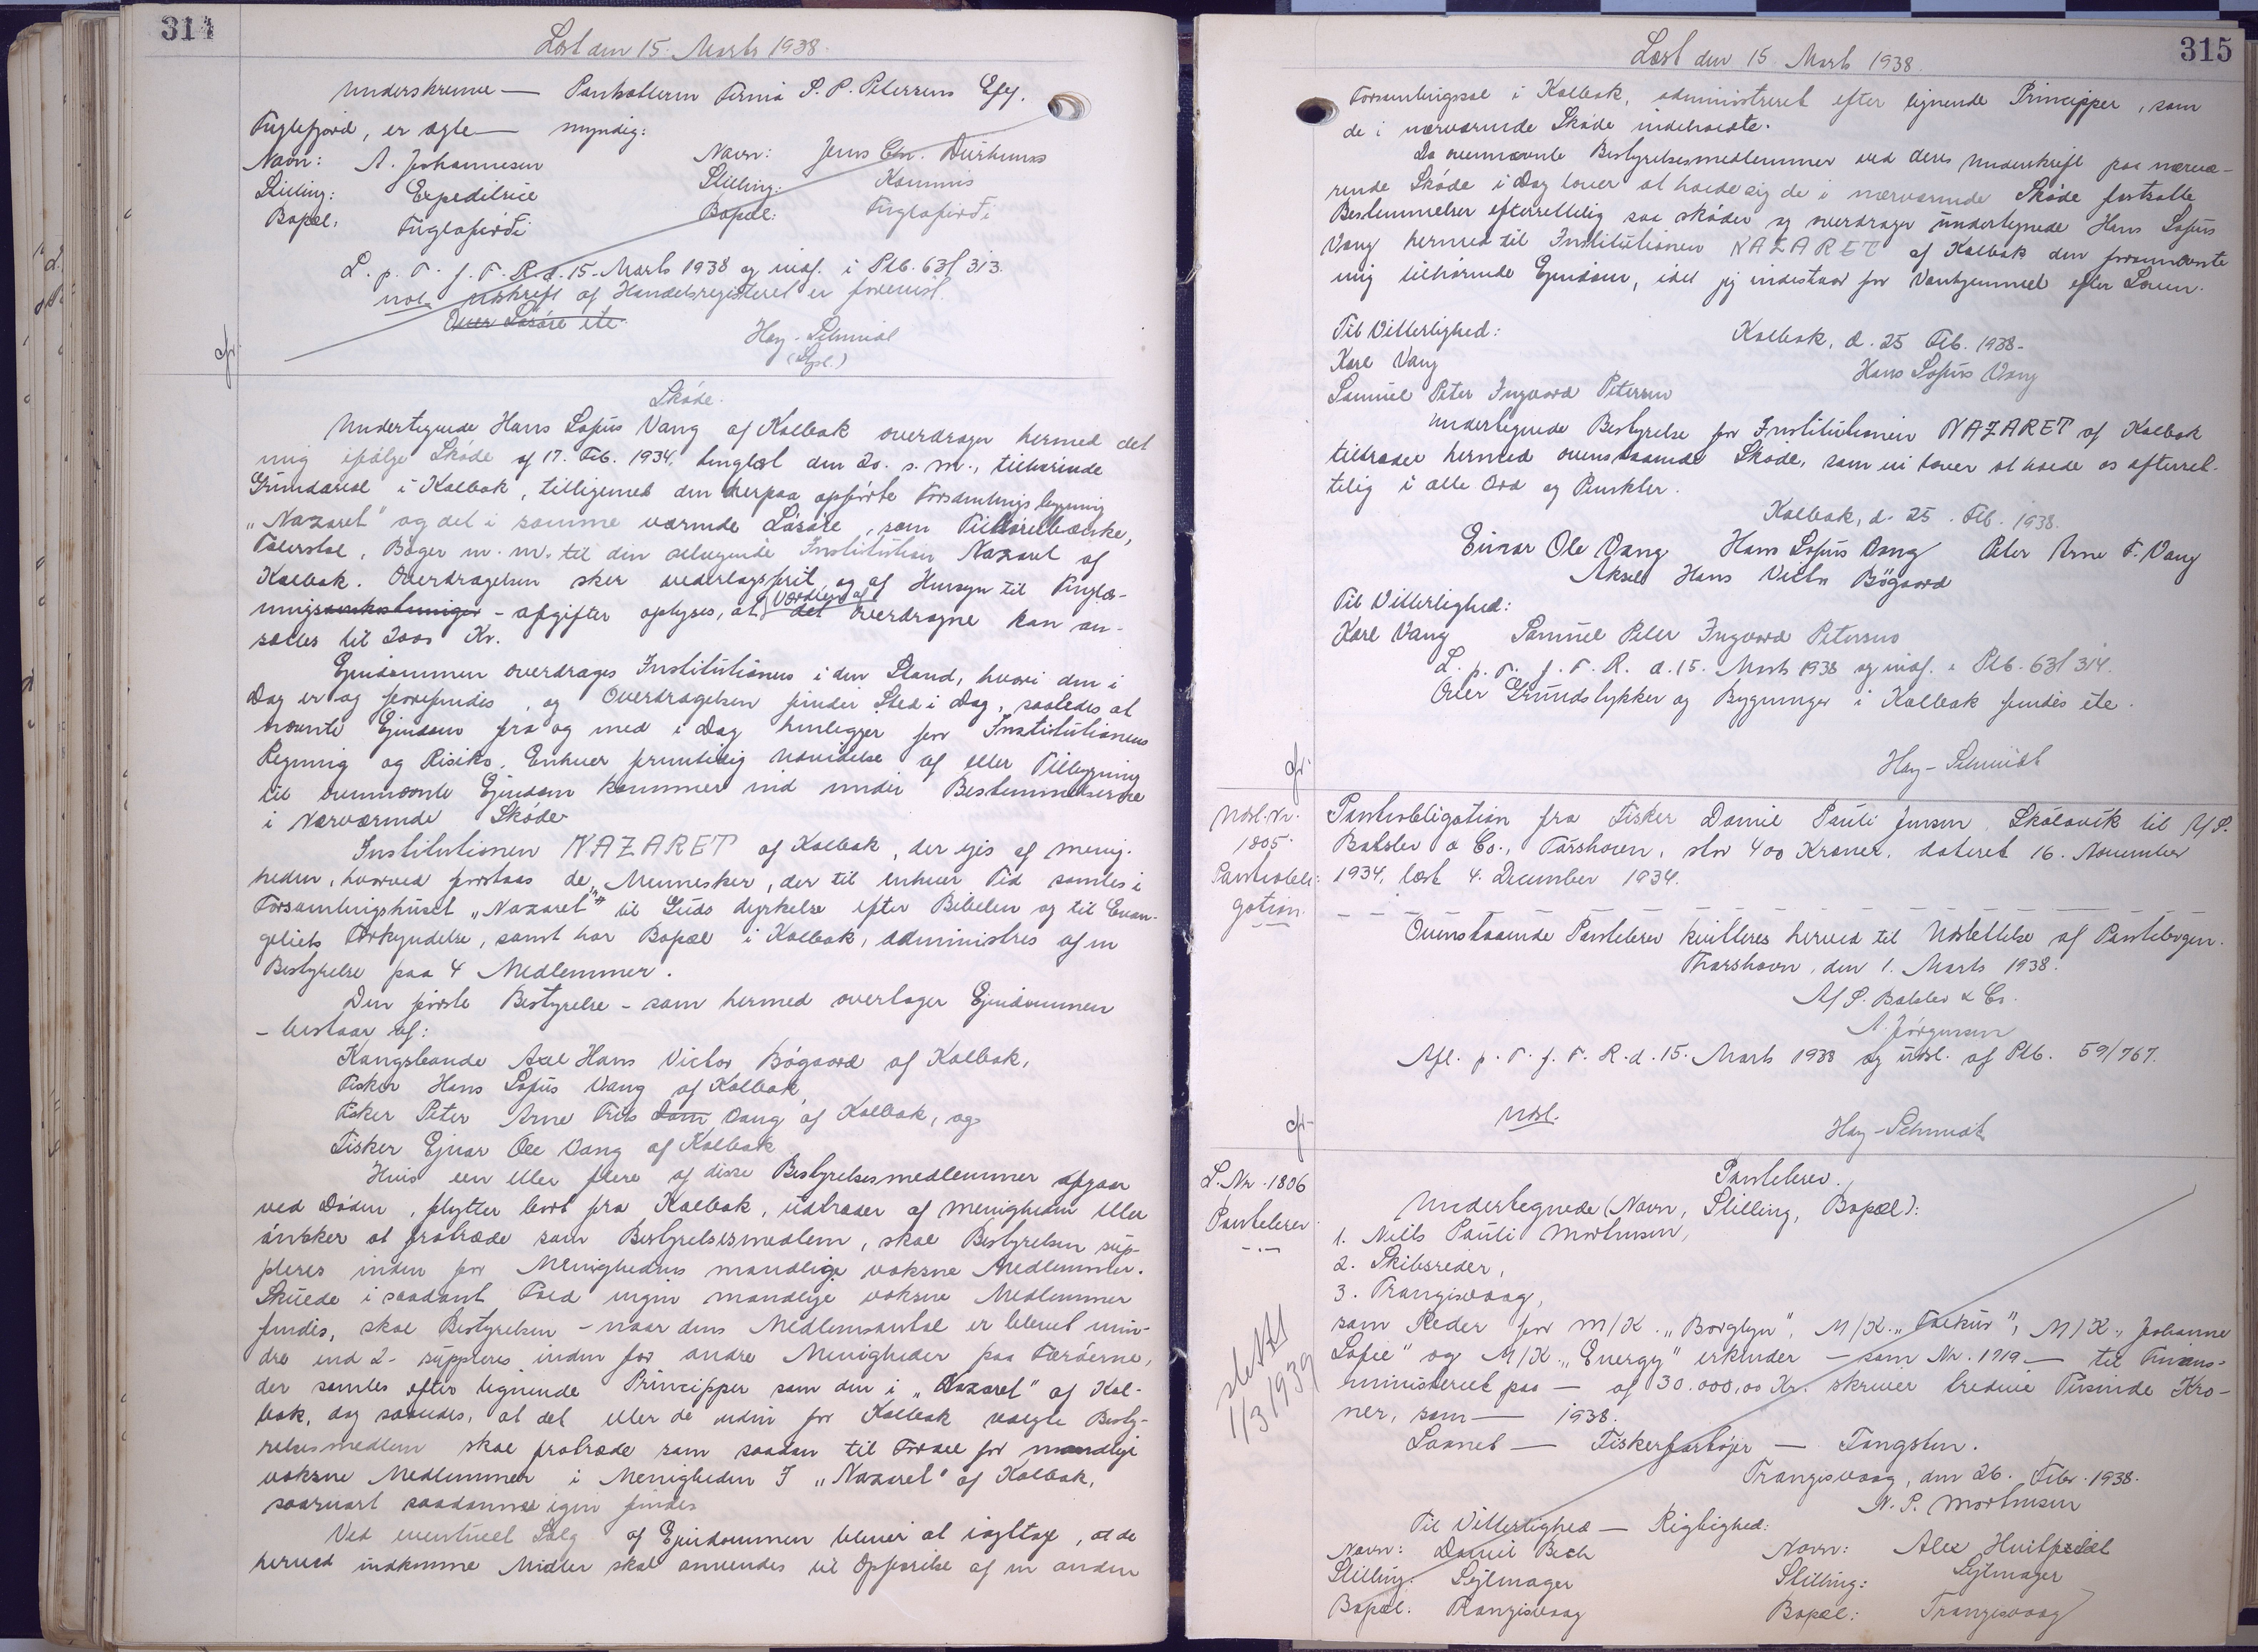 314
Læst den 15. Marts 1938.
Underskrevne — Panthaveren Firma S. P. Petersens Eftf.
Fuglefjord, er ægte — myndig:
Navn: A. Johannesen Navn: Jens Chr. Duurhuus
Stilling: Expeditrice Stilling: Kommis
Bopæl: Fuglafirði Bopæl: Fuglafirði
L. p. T. f. F. R. d. 15. Marts 1938 og indf. i Ptb. 63/313.
Udskrift af Handelsregisteret er forevist.
Over Løsøre ete.
Hey-Schmidt
(Styl.)
Skøde.
Undertegnede Hans Sofus Vang af Kolbak overdrager hermed det
mig ifølge Skøde af 17. Feb. 1934, tinglæst den 20. s. m., tilhørende
Grundareal i Kolbak, tilligemed den herpaa opførte Forsamlingsbygning
"Nazaret" og det i samme værende Løsøre, som Tilhørerbænke,
Talerstol, Bøger m. m. til den selvejende Institution Nazaret af
Kolbak. Overdragelsen sker vederlagsfrit, og af Hensyn til Tinglæs-
ningsomkostninger - afgifter oplyses, at Værdien af det overdragne kan an-
sættes til 2000 Kr.
Ejendommen overdrages Institutionen i den Stand, hvori den i
Dag er og forefindes, og Overdragelsen finder Sted i Dag, saaledes at
nævnte Ejendom fra og med i Dag henligger for Institutionens
Regning og Risiko. Enhver fremtidig Udvidelse af eller Tilbygning
til ovennævnte Ejendom kommer ind under Bestemmelserne
i Nærværende Skøde.
Institutionen NAZARET af Kolbak, der ejes af Menig-
heden, hvorved forstaas de Mennesker, der til enhver Tid samles i
Forsamlingshuset "Nazaret" til Guds dyrkelse efter Bibelen og til Evan-
geliets Forkyndelse, samt har Bopæl i Kolbak, administres af en
Bestyrelse paa 4 Medlemmer.
Den første Bestyrelse - som hermed overtager Ejendommen
- bestaar af:
Kongsbonde Axel Hans Victor Bøgaard af Kolbak,
Fisker Hans Sofus Vang af Kolbak,
Fisker Peter Arne Friis Dam Vang af Kolbak, og
Fisker Ejnar Ole Vang af Kolbak
Hvis een eller flere af disse Bestyrelsesmedlemmer afgaar
ved Døden, flytter bort fra Kolbak, udtræder af Menigheden eller
ønsker at fratræde som Bestyrelsesmedlem, skal Bestyrelsen sup-
pleres inden for Menighedens mandlige voksne Medlemmer.
Skulde i saadant Fald ingen mandlige voksne Medlemmer
findes, skal Bestyrelsen - naar dens Medlemsantal er blevet min-
dre end 2 - suppleres inden for andre Menigheder paa Færøerne,
der samles efter lignende Principper som den i "Nazaret" af Kol-
bak, dog saaledes, at det eller de uden for Kolbak valgte Besty-
relsesmedlem skal fratræde som saadan til Fordel for mandlige
voksne Medlemmer i Menigheden I "Nazaret" af Kolbak,
saasnart saadanne igen findes
Ved eventuelt Salg af Ejendommen bliver at iagttage, at de
herved indkomne Midler skal anvendes til Opførelse af en anden
315
Læst den 15 Marts 1938.
Forsamlingssal i Kolbak, administreret efter lignende Principper, som
de i nærværende Skøde indeholdte.
Da ovennævnte Bestyrelsesmedlemmer ved deres Underskrift paa nærvæ-
rende Skøde i Dag lover at holde sig de i nærværende Skøde fastsatte
Bestemmelser efterrettelig saa skøder og overdrager undertegnede Hans Sofus
Vang hermed til Institutionen NAZARET af Kolbak den forannævnte
mig tilhørende Ejendom, idet jeg indestaar for Vanhjemmel efter Loven.
Til Vitterlighed: Kolbak, d. 25 Feb. 1938.
Karl Vang Hans Sofus Vang
Samuel Peter Ingvard Petersen
Undertegnede Bestyrelse for Institutionen NAZARET af Kolbak
tiltræder hermed ovenstaaende Skøde, som vi lover at holde os efterret-
telig i alle Ord og Punkter.
Kolbak, d. 25. Feb. 1938.
Einar Ole Vang Hans Sofus Vang Peter Arne F. Vang
Aksel Hans Victor Bøgaard
Til Vitterlighed:
Karl Vang Samuel Peter Ingvard Petersen
L. p. T. f. F. R. d. 15. Marts 1938 og indf. i Ptb. 63/314.
Over Grundstykker og Bygninger i Kolbak findes ete.
Hey-Schmidt
Udsl. Nr. 1805.
Pantobli-
gation.
Pantobligation fra Fisker Daniel Pauli Jensen, Skálavík til A/S.
Balslev & Co., Tórshavn, stor 400 Kroner, dateret 16. November
1934, læst 4. December 1934.
Ovenstaaende Pantebrev kvitteres herved til Udslettelse af Pantebogen.
Thorshavn, den 1. Marts 1938.
A/S. Balslev & Co.
A. Jørgensen
Afl. p. T. f. F. R. d. 15. Marts 1938 og udsl. af Ptb. 59/767.
Udsl. Hey-Schmidt
L. Nr. 1806
Pantebrev.
slettet
1/3 1939
Pantebrev.
Undertegnede (Navn, Stilling, Bopæl):
1. Niels Pauli Mortensen,
2. Skibsreder,
3. Trangisvaag,
som Reder for M/K. "Borglyn", M/K. "Falkur", M/K. "Johanne
Sofie" og M/K. "Energy" erkender — som Nr. 1719 — til Finans-
ministeriet paa — af 30.000,00 Kr. skriver tredive Tusinde Kro-
ner, som — 1938.
Laanet — Fiskerfartøjer — Tongsten.
Trangisvaag, den 26. Febr. 1938.
N. P. Mortensen
Til Vitterlighed — Rigtighed:
Navn: Daniel Bech Navn: Alex Huitfeldt
Stilling: Sejlmager Stilling: Sejlmager
Bopæl: Trangisvaag Bopæl: Trangisvaag